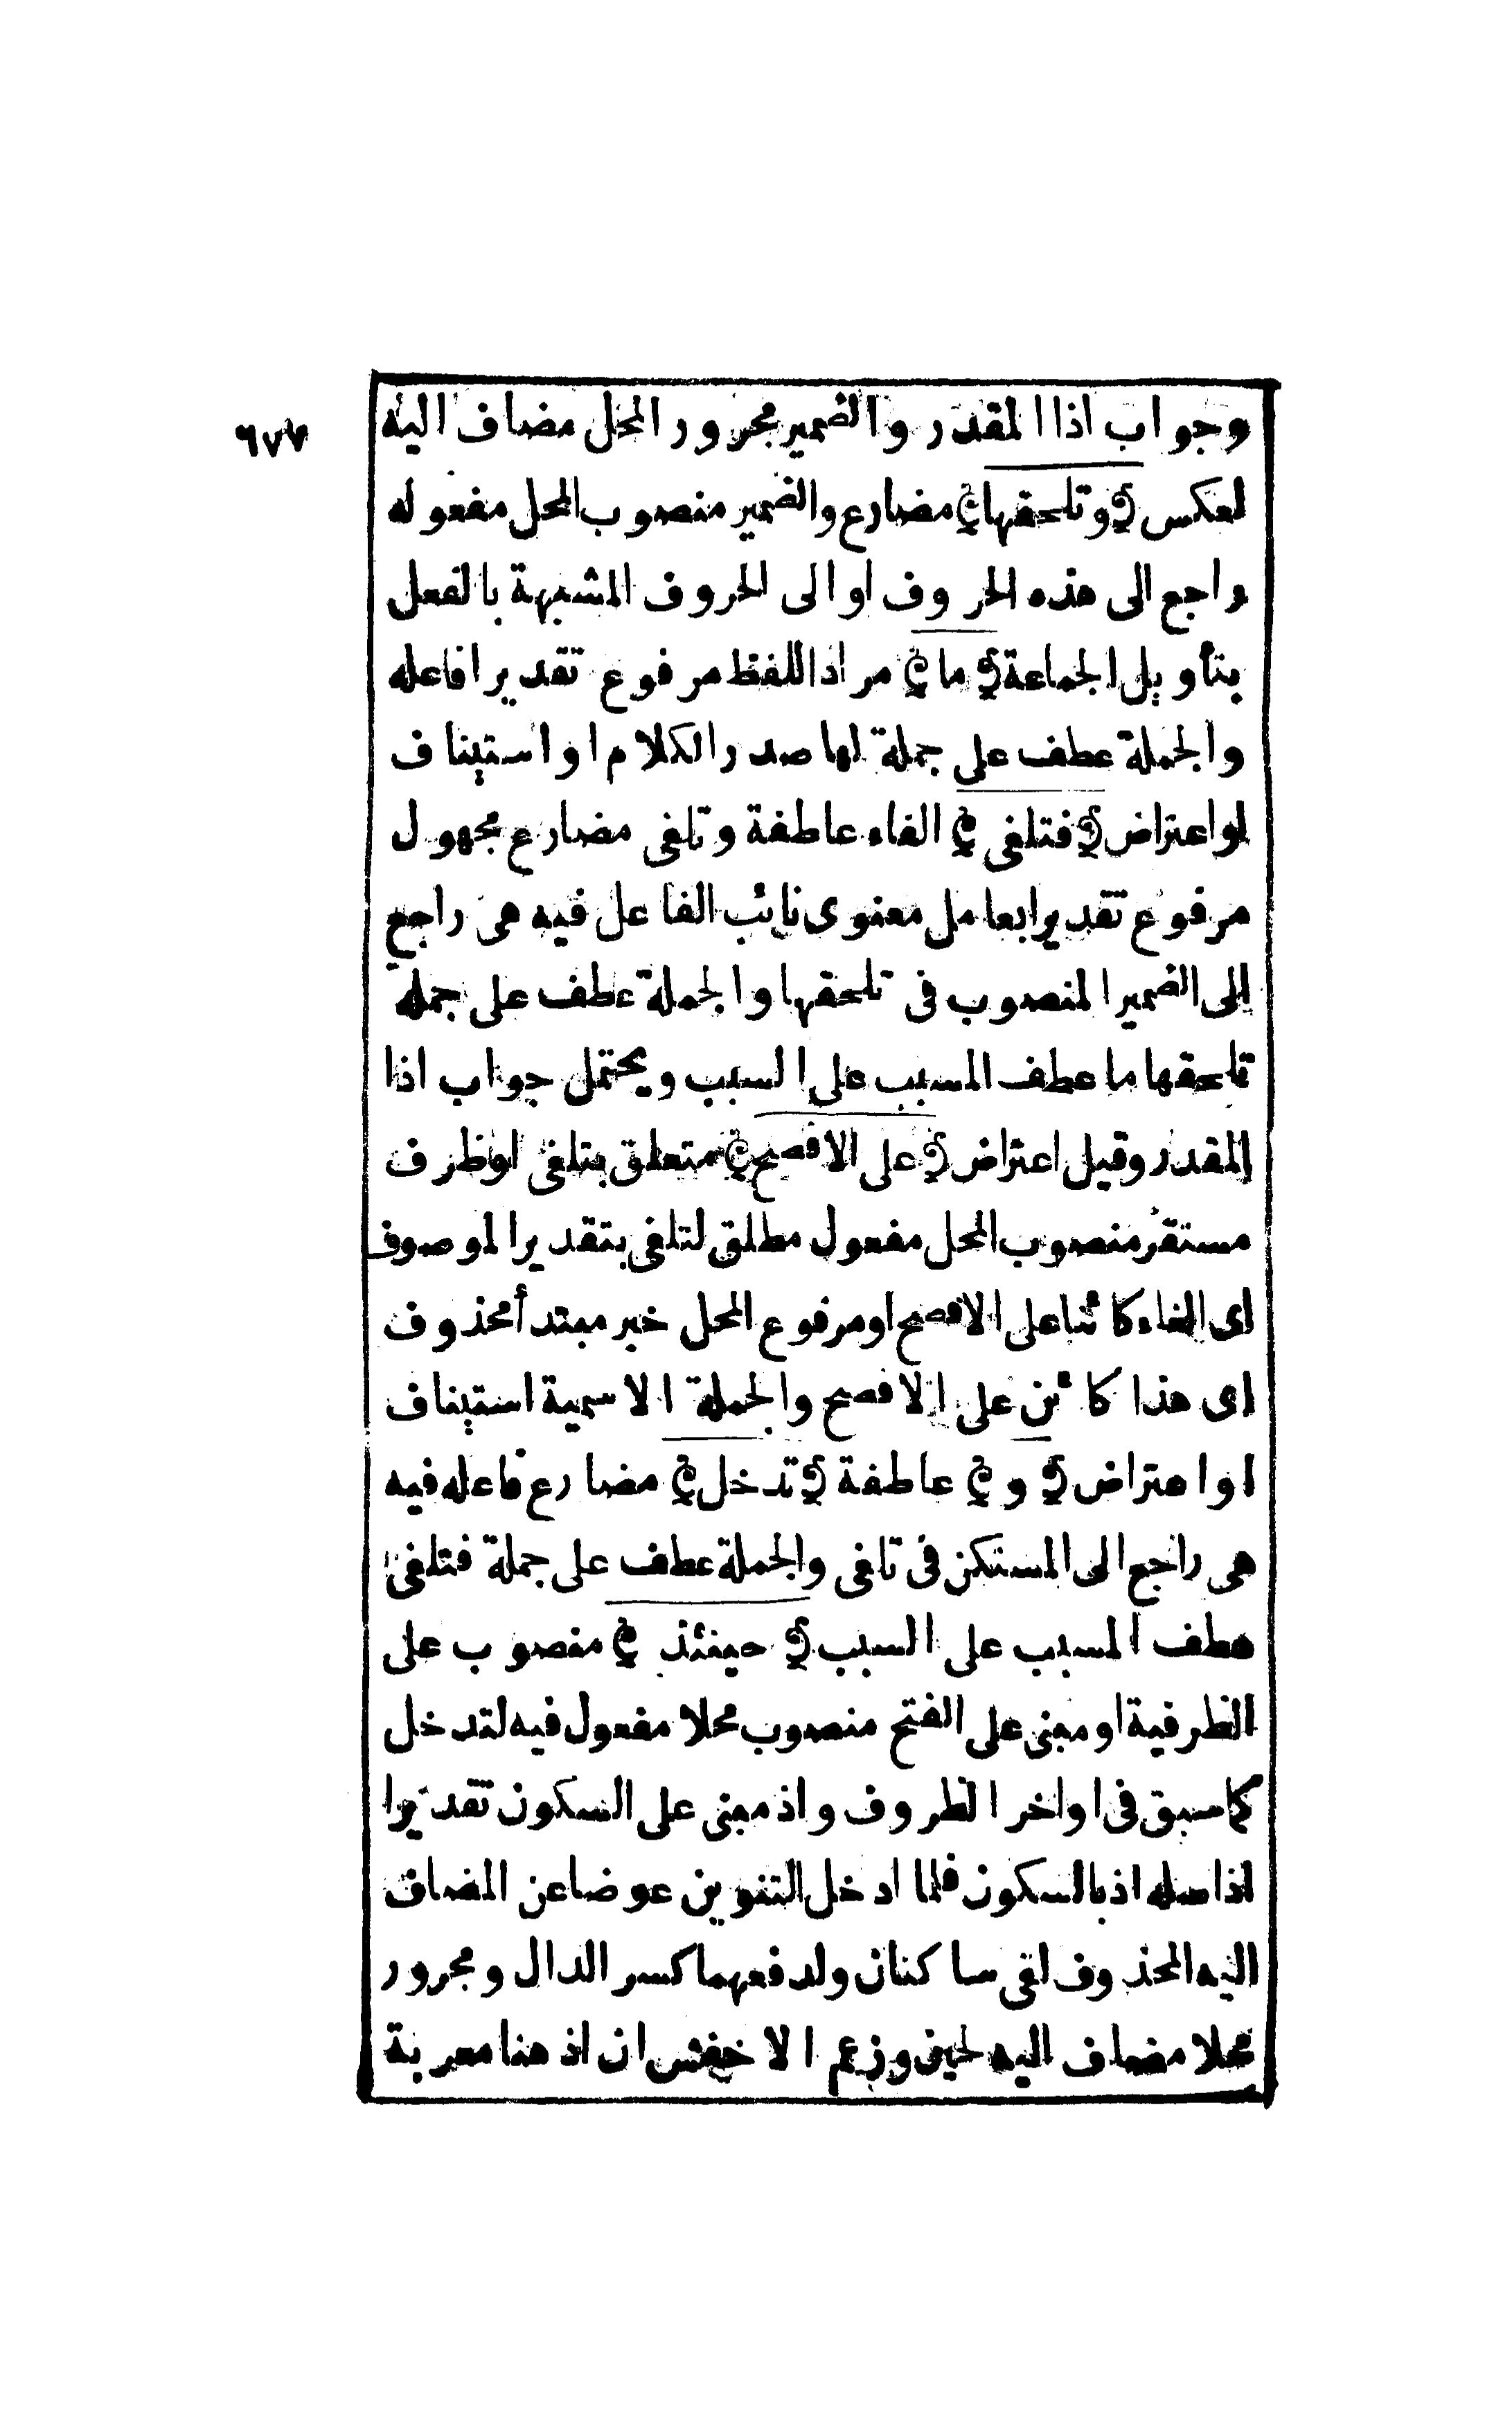 ٦٧٧
وجواب اذا المقدر والضمير مجرور المحل مضاف اليه
لعكس ﴿ وتلحقها ﴾ مضارع والضمير منصوب المحل مفعوله
راجع الى هذه الحروف او الى الحروف المشبهة بالفعل
بتأويل الجماعة ﴿ ما ﴾ مراد اللفظ مرفوع تقديرا فاعله
والجملة عطف على جملة لها صدر الكلام او استيناف
او اعتراض ﴿ فتلغى ﴾ الفاء عاطفة وتلغى مضارع مجهول
مرفوع تقديرا بعامل معنوى نائب الفاعل فيه هى راجع
الى الضمير المنصوب فى تلحقها والجملة عطف على جملة
تلحقها ما عطف المسبب على السبب ويحتمل جواب اذا
المقدر وقيل اعتراض ﴿ على الافصح ﴾ متعلق بتلغى او ظرف
مستقر منصوب المحل مفعول مطلق لتلغى بتقدير الموصوف
اى الغاء كائنا على الافصح او مرفوع المحل خبر مبتدأ محذوف
اى هذا كائن على الافصح والجملة الاسمية استيناف
او اعتراض ﴿ و ﴾ عاطفة ﴿ تدخل ﴾ مضارع فاعله فيه
هى راجع الى المستكن فى تلغى والجملة عطف على جملة فتلغى
عطف المسبب على السبب ﴿ حينئذ ﴾ منصوب على
الظرفية او مبنى على الفتح منصوب محلا مفعول فيه لتدخل
كما سبق فى اواخر الظروف واذ مبنى على السكون تقديرا
اذ اصله اذ بالسكون فلما ادخل التنوين عوضا عن المضاف
اليه المحذوف لقى ساكنان ولدفعهما كسر الذال ومجرور
محلا مضاف اليه لحين وزعم الاخفش ان اذ هنا معربة